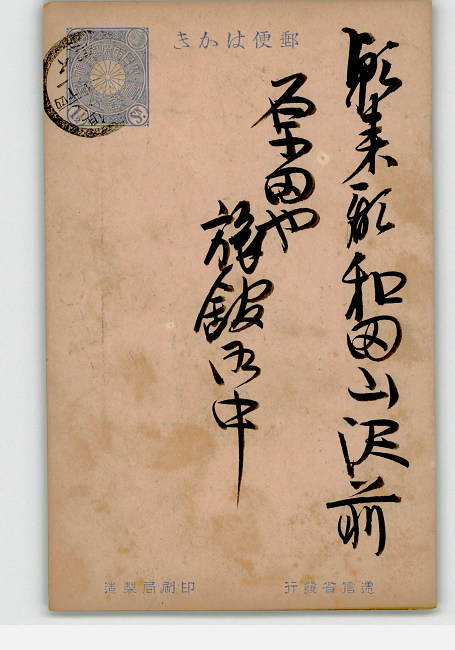 郵便はかき
朝来郡和田山駅前
田や
旅館御中
遞信省發行
印刷局製造